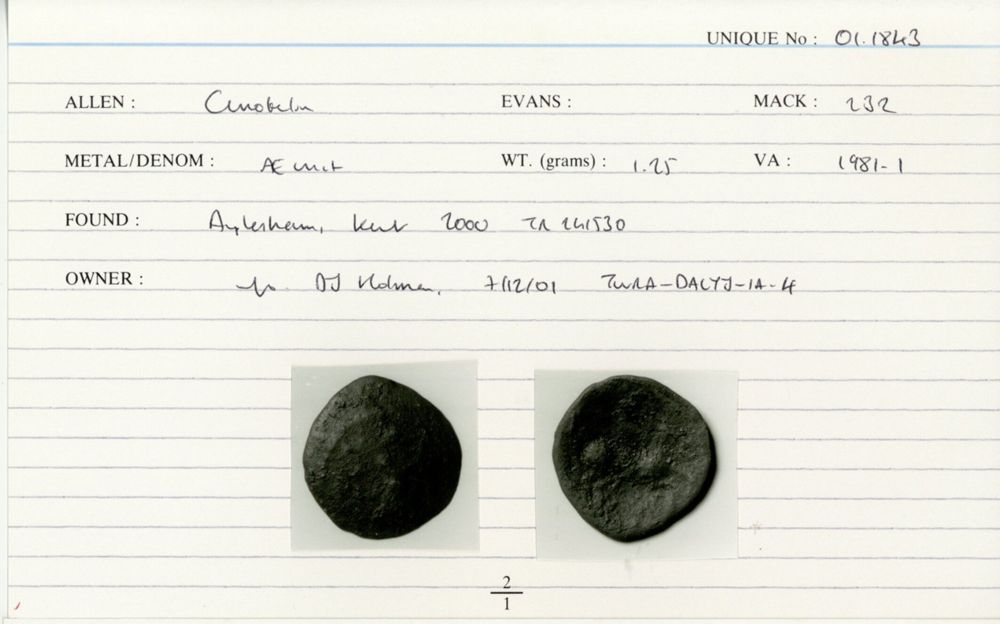 UNIQUE No : 01.1843
ALLEN : Cunobelin EVANS : MACK : 232
METAL/DENOM : Æ unit WT. (grams) : 1.25 VA : 1981-1
FOUND : Aylesham, Kent 2000 TR 241530
OWNER : DJ Holman, 7/12/01
2
1